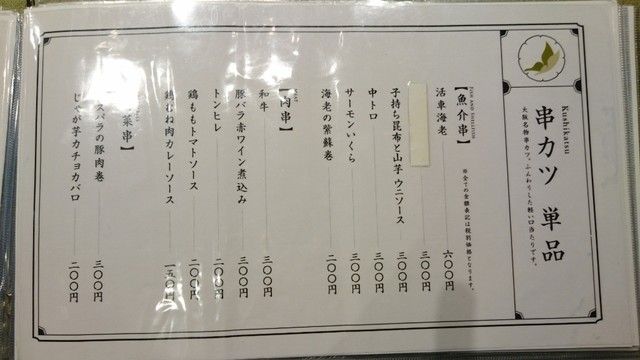 Kushikatsu
串カツ 単品
大阪名物串カツ。ふんわりした軽い口当たりです。
【魚介串】
FISH AND SHELLFISH
※全ての金額表記は税別価格となります。
活車海老 六〇〇円
三〇〇円
子持ち昆布と山芋 ウニソース 三〇〇円
中トロ 三〇〇円
サーモンいくら 三〇〇円
海老の紫蘇巻 二〇〇円
【肉串】
和牛 三〇〇円
豚バラ赤ワイン煮込み 三〇〇円
トンヒレ 二〇〇円
鶏ももトマトソース 二〇〇円
鶏むね肉カレーソース 一五〇円
菜串】
スパラの豚肉巻 三〇〇円
じゃが芋カチョカバロ 二〇〇円